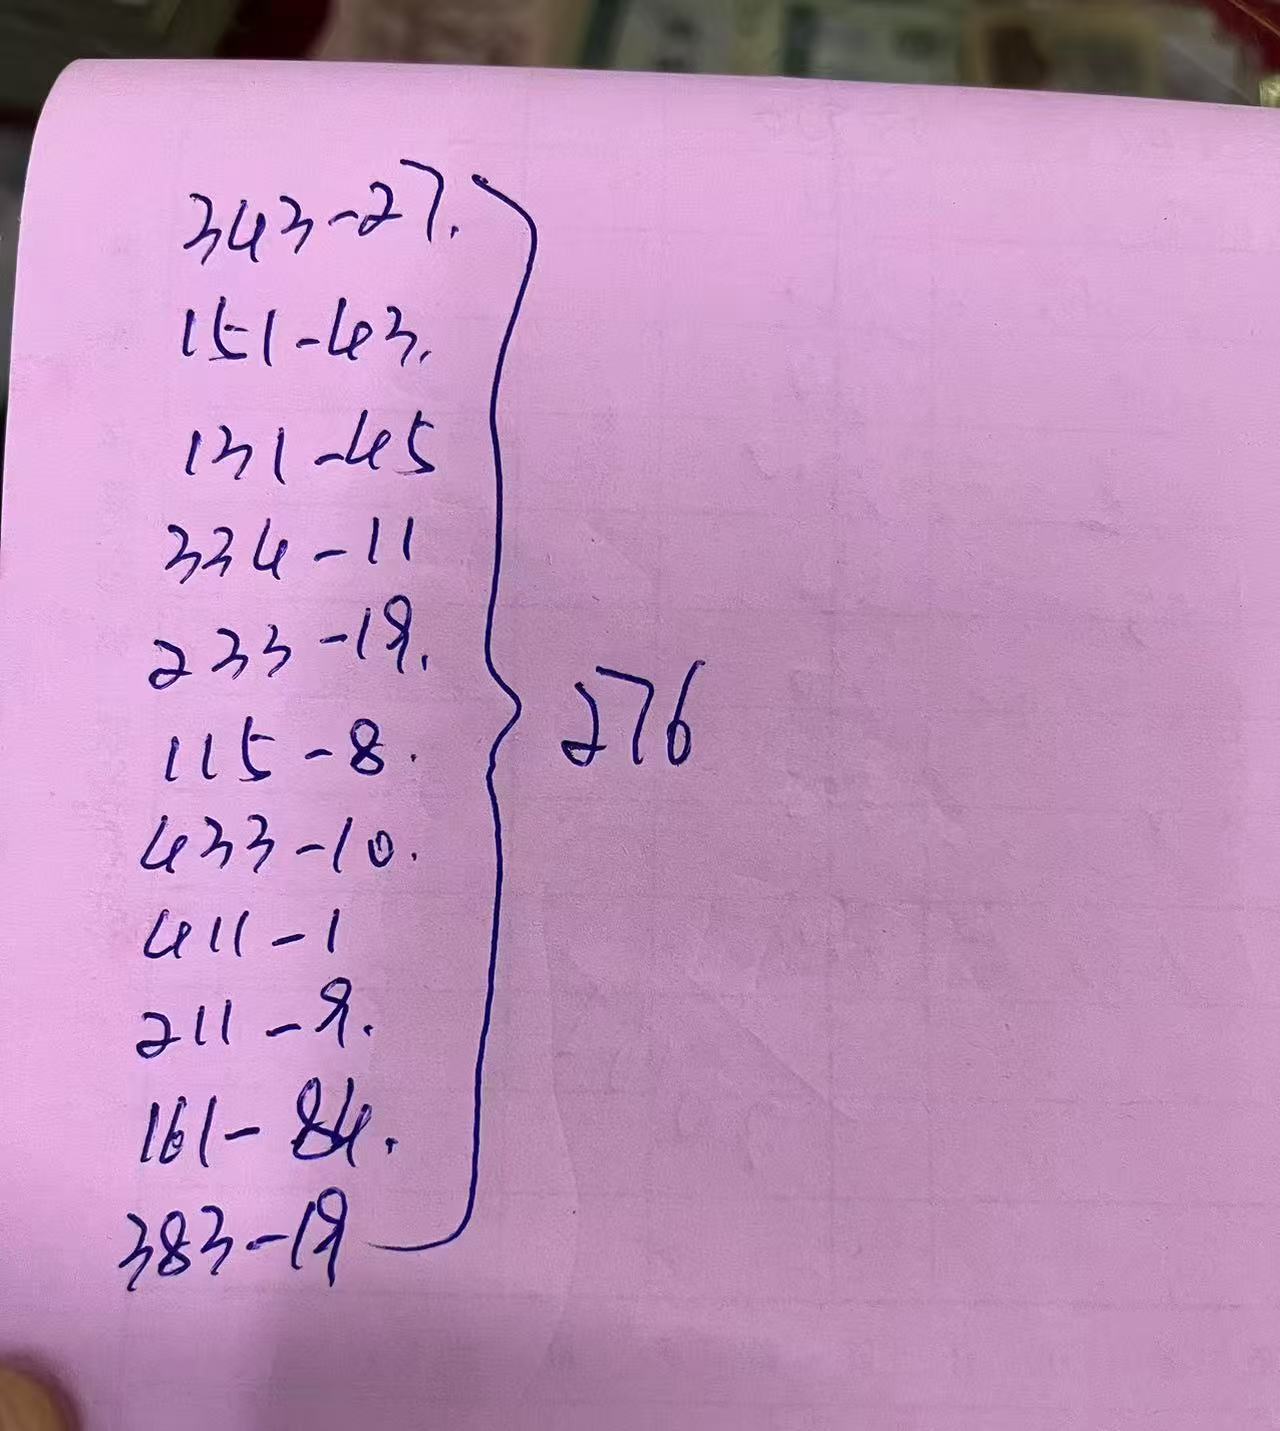 343-27.
151-43.
131-45
334-11
233-19.
115-8.
433-10.
411-1
211-9.
161-84.
383-19
276